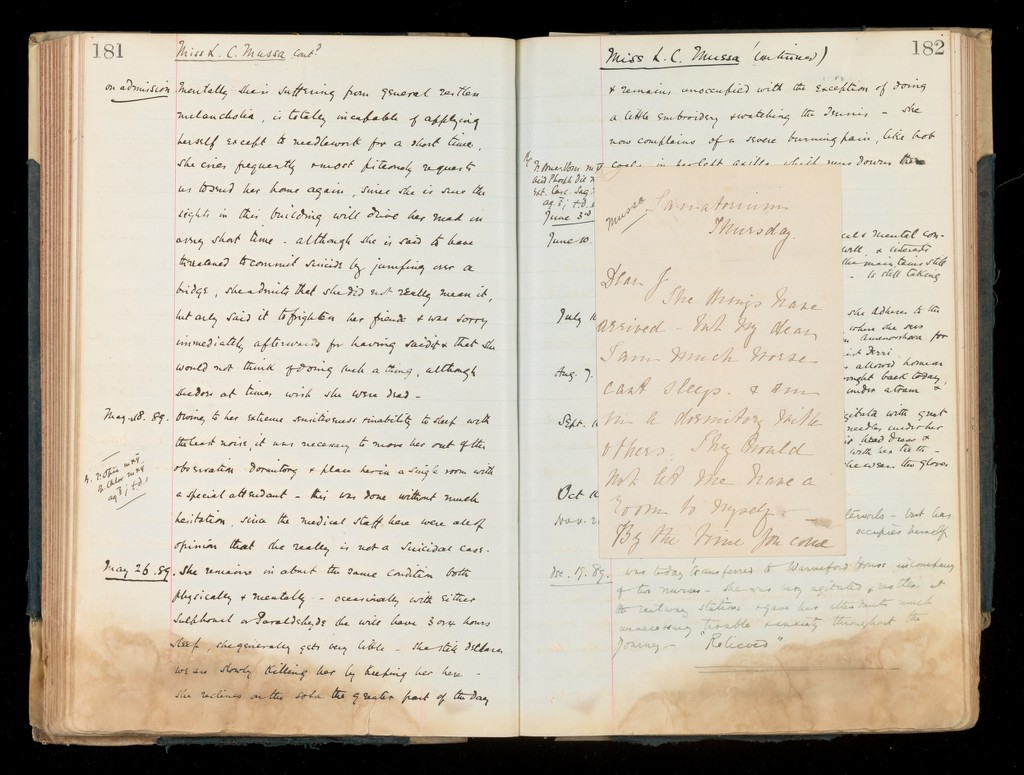 181
Miss L. C. Mussa cont?
on admission
Mentally she is suffering from general restless
melancholia, is totally incapable of applying
herself except to needlework for a short time,
she cries frequently & most piteously requests
us to send her home again, since she is sure the
sights in this building will drive her mad in
a very short time - although she is said to have
threatened to commit suicide by jumping over a
bridge, she admits that she did not really mean it,
but only said it to frighten her friends & was sorry
immediately afterwards for having said it & that she
would not think of doing such a thing, although
she does at times wish she were dead -
May 18. 89.
Owing to her extreme sensitiveness & inability to sleep with
the least noise, it was necessary to move her out of the
observation dormitory & place her in a single room with
a special attendant - this was done without much
hesitation, since the medical staff here were all of
opinion that she really is not a suicidal case.
May 26. 89.
She remains in about the same condition both
physically & mentally - occasionally with either
Sulphonal or Paraldehyde she will have 3 or 4 hours
sleep, she generally gets very little - she still declares
we are slowly killing her by keeping her here -
She reclines on the sofa the greater part of the day
182
Miss L. C. Mussa (continued)
& remains unoccupied with the exception of doing
a little embroidery & watching the Tennis - She
now complains of a severe burning pain, like hot
coals in her left axilla which runs down the
June 3rd
June 10.
July
Aug. 7.
Sept.
Oct
Nov.
Mussa
Sanatorium
Thursday.
Dear J
The things have
arrived - but my dear
I am much worse
cant sleep. & am
in a dormitory with
others. They would
not let me have a
room to myself -
By the time you come
& mental con-
will, & interests
she maintains still
- is still taking
she adheres to the
where she sees
amenorrhoea for
Ferri
allowed home on
brought back today,
under a train
with great
needles under her
head dress &
with her teeth -
she wears the gloves
- but has
occupies herself
Dec. 19. 89.
was today transferred to Warneford House in company
of two nurses - she was very agitated & restless at
the railway stations & gave her attendants much
unnecessary trouble & anxiety throughout the
Journey - "Relieved"